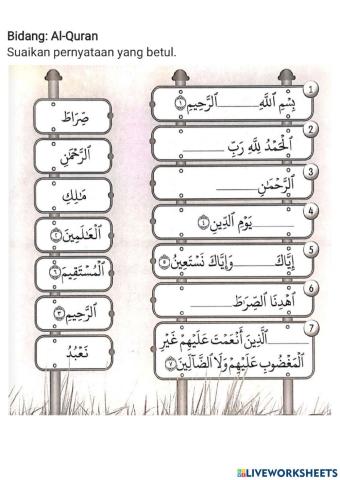 Bidang: Al-Quran
Suaikan pernyataan yang betul.
صِرَاطَ
ٱلرَّحْمَٰنِ
مَٰلِكِ
ٱلْعَٰلَمِينَ ٢
ٱلْمُسْتَقِيمَ ٦
ٱلرَّحِيمِ ٣
نَعْبُدُ
1
بِسْمِ ٱللَّهِ ________ ٱلرَّحِيمِ ١
2
ٱلْحَمْدُ لِلَّهِ رَبِّ ________
3
ٱلرَّحْمَٰنِ ________
4
________ يَوْمِ ٱلدِّينِ ٤
5
إِيَّاكَ ________ وَإِيَّاكَ نَسْتَعِينُ ٥
6
ٱهْدِنَا ٱلصِّرَٰطَ ________
7
________ ٱلَّذِينَ أَنْعَمْتَ عَلَيْهِمْ غَيْرِ
ٱلْمَغْضُوبِ عَلَيْهِمْ وَلَا ٱلضَّآلِّينَ ٧
LIVEWORKSHEETS